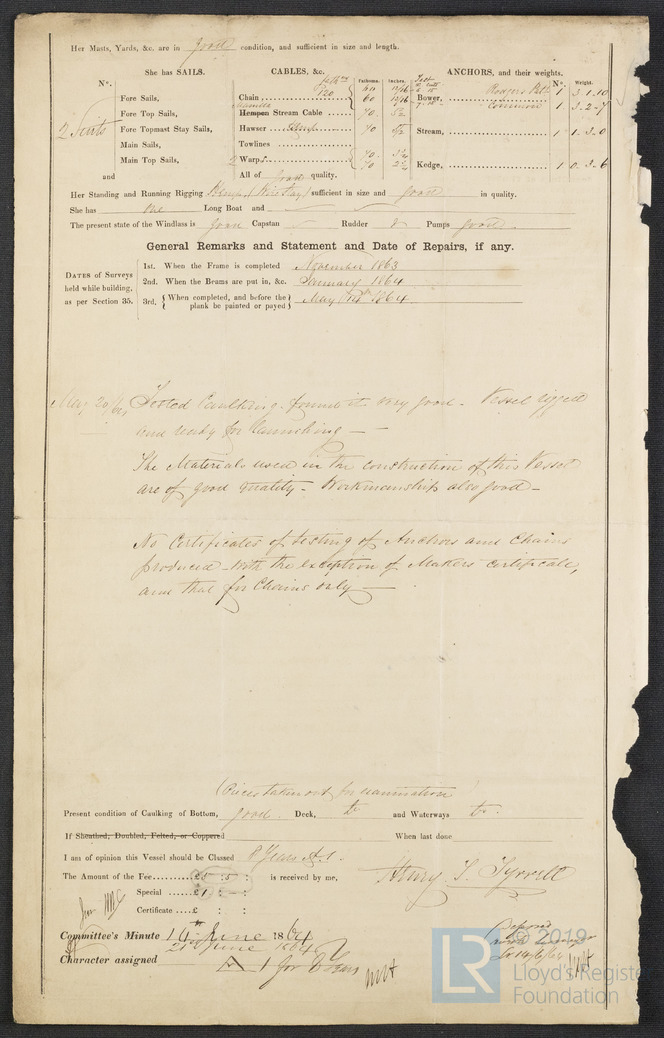 Her Masts, Yards, &c. are in good condition, and sufficient in size and length.
She has SAILS. CABLES, &c. ANCHORS, and their weights.
N°. Fathoms. Inches. N°. Weight.
Fore Sails, Chain 120 60 Bower, Rodgers Pat 1 3.1.10
Fore Top Sails, Hempen Stream Cable 70. 5½ Common 1 3.2.7
2 Suits Fore Topmast Stay Sails, Hawser Hemp 70 5/2 Stream, 1 1.3.0
Main Sails, Towlines
Main Top Sails, 2 Warps 70. 70 Kedge, 1 0.3.6
and All of good quality.
Her Standing and Running Rigging Hemp sufficient in size and good in quality.
She has one Long Boat and
The present state of the Windlass is good Capstan Rudder Pumps good.
General Remarks and Statement and Date of Repairs, if any.
DATES of Surveys held while building, as per Section 35.
1st. When the Frame is completed November 1863
2nd. When the Beams are put in, &c. January 1864
3rd, { When completed, and before the plank be painted or payed } May 14th 1864
May 20/64 Tested Caulking. found it very good - Vessel rigged
and ready for launching —
The Materials used in the construction of this Vessel
are of good quality - Workmanship also good -
No Certificates of testing of Anchors and Chains
produced - with the exception of Makers certificate,
and that for Chains only —
(Pieces taken out for examination)
Present condition of Caulking of Bottom, good. Deck, do and Waterways do.
If Sheathed, Doubled, Felted, or Coppered When last done
I am of opinion this Vessel should be Classed 8 Years A.1.
The Amount of the Fee £5 : 5 : is received by me, Henry T. Tyrrell
Special £1 : - :
Certificate £ : :
Committee's Minute 14 June 1864
21st June 1864
Character assigned A 1 for 8 Years
© 2019
LR Lloyd's Register
Foundation